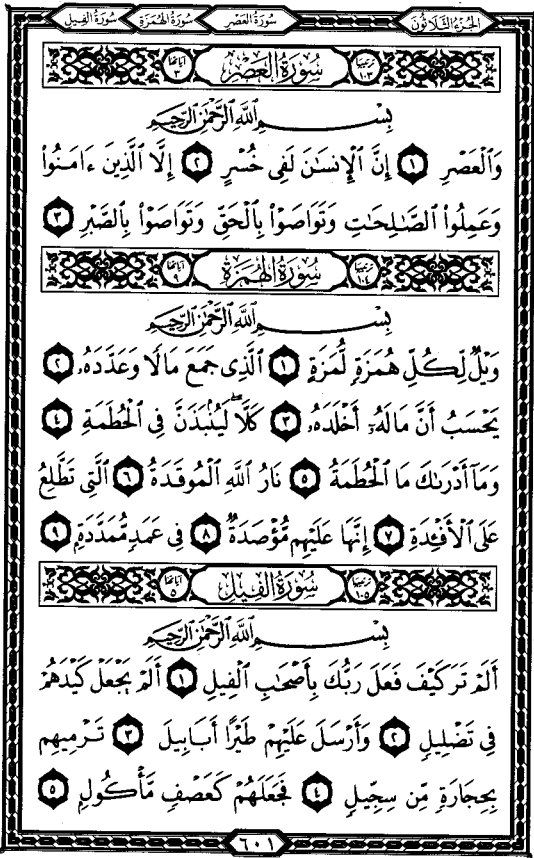 الجزء الثلاثون سورة العصر سورة الهمزة سورة الفيل
ترتيبها ١٠٣ سُورَةُ العَصْرِ آياتها ٣
بِسْمِ ٱللَّهِ ٱلرَّحْمَٰنِ ٱلرَّحِيمِ
وَٱلْعَصْرِ ١ إِنَّ ٱلْإِنسَٰنَ لَفِى خُسْرٍ ٢ إِلَّا ٱلَّذِينَ ءَامَنُوا۟
وَعَمِلُوا۟ ٱلصَّٰلِحَٰتِ وَتَوَاصَوْا۟ بِٱلْحَقِّ وَتَوَاصَوْا۟ بِٱلصَّبْرِ ٣
ترتيبها ١٠٤ سُورَةُ الهُمَزَةِ آياتها ٩
بِسْمِ ٱللَّهِ ٱلرَّحْمَٰنِ ٱلرَّحِيمِ
وَيْلٌ لِّكُلِّ هُمَزَةٍ لُّمَزَةٍ ١ ٱلَّذِى جَمَعَ مَالًا وَعَدَّدَهُۥ ٢
يَحْسَبُ أَنَّ مَالَهُۥٓ أَخْلَدَهُۥ ٣ كَلَّا ۖ لَيُنۢبَذَنَّ فِى ٱلْحُطَمَةِ ٤
وَمَآ أَدْرَىٰكَ مَا ٱلْحُطَمَةُ ٥ نَارُ ٱللَّهِ ٱلْمُوقَدَةُ ٦ ٱلَّتِى تَطَّلِعُ
عَلَى ٱلْأَفْـِٔدَةِ ٧ إِنَّهَا عَلَيْهِم مُّؤْصَدَةٌ ٨ فِى عَمَدٍ مُّمَدَّدَةٍۭ ٩
ترتيبها ١٠٥ سُورَةُ الفِيلِ آياتها ٥
بِسْمِ ٱللَّهِ ٱلرَّحْمَٰنِ ٱلرَّحِيمِ
أَلَمْ تَرَ كَيْفَ فَعَلَ رَبُّكَ بِأَصْحَٰبِ ٱلْفِيلِ ١ أَلَمْ يَجْعَلْ كَيْدَهُمْ
فِى تَضْلِيلٍ ٢ وَأَرْسَلَ عَلَيْهِمْ طَيْرًا أَبَابِيلَ ٣ تَرْمِيهِم
بِحِجَارَةٍ مِّن سِجِّيلٍ ٤ فَجَعَلَهُمْ كَعَصْفٍ مَّأْكُولٍۭ ٥
٦٠١